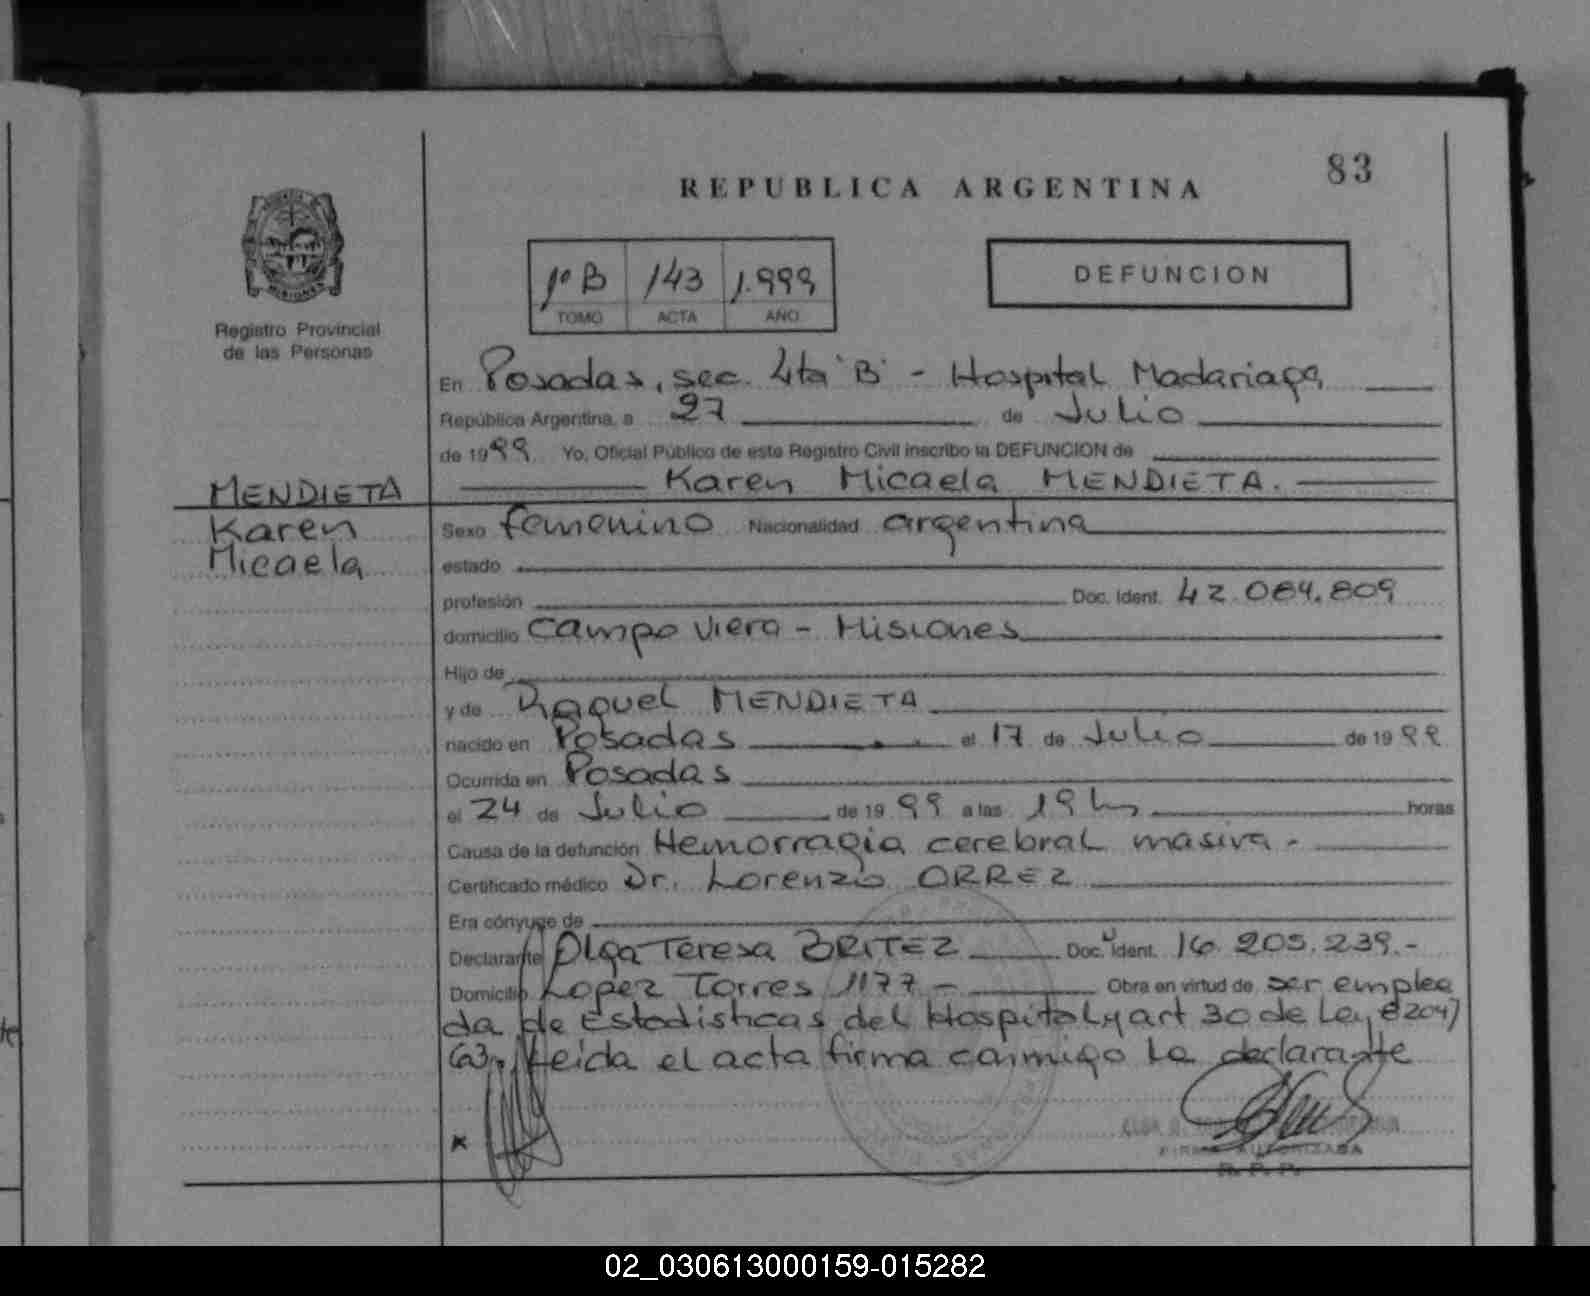 83
REPUBLICA ARGENTINA
1º B 143 1.999
TOMO ACTA AÑO
DEFUNCION
MISIONES
Registro Provincial
de las Personas
En Posadas, sec. 4ta "B" - Hospital Madariaga
República Argentina, a 27 de Julio
de 1999 Yo, Oficial Público de este Registro Civil inscribo la DEFUNCION de
Karen Micaela MENDIETA.
MENDIETA
Karen
Micaela
Sexo femenino Nacionalidad argentina
estado
profesión Doc. Ident. 42.084.809
domicilio Campo Viera - Misiones
Hijo de
y de Raquel MENDIETA
nacido en Posadas el 17 de Julio de 1999
Ocurrida en Posadas
el 24 de Julio de 1999 a las 19 hs horas
Causa de la defunción Hemorragia cerebral masiva -
Certificado médico Dr. Lorenzo ORREZ
Era cónyuge de
Declarante Olga Teresa BRITEZ Doc. Ident. 16.205.239.-
Domicilio Lopez Torres 1177 - Obra en virtud de ser emplea
da de Estadisticas del Hospital y art 30 de Ley 8204/
63. Leida el acta firma conmigo la declarante
FIRMA AUTORIZADA
R. P. P.
02_030613000159-015282